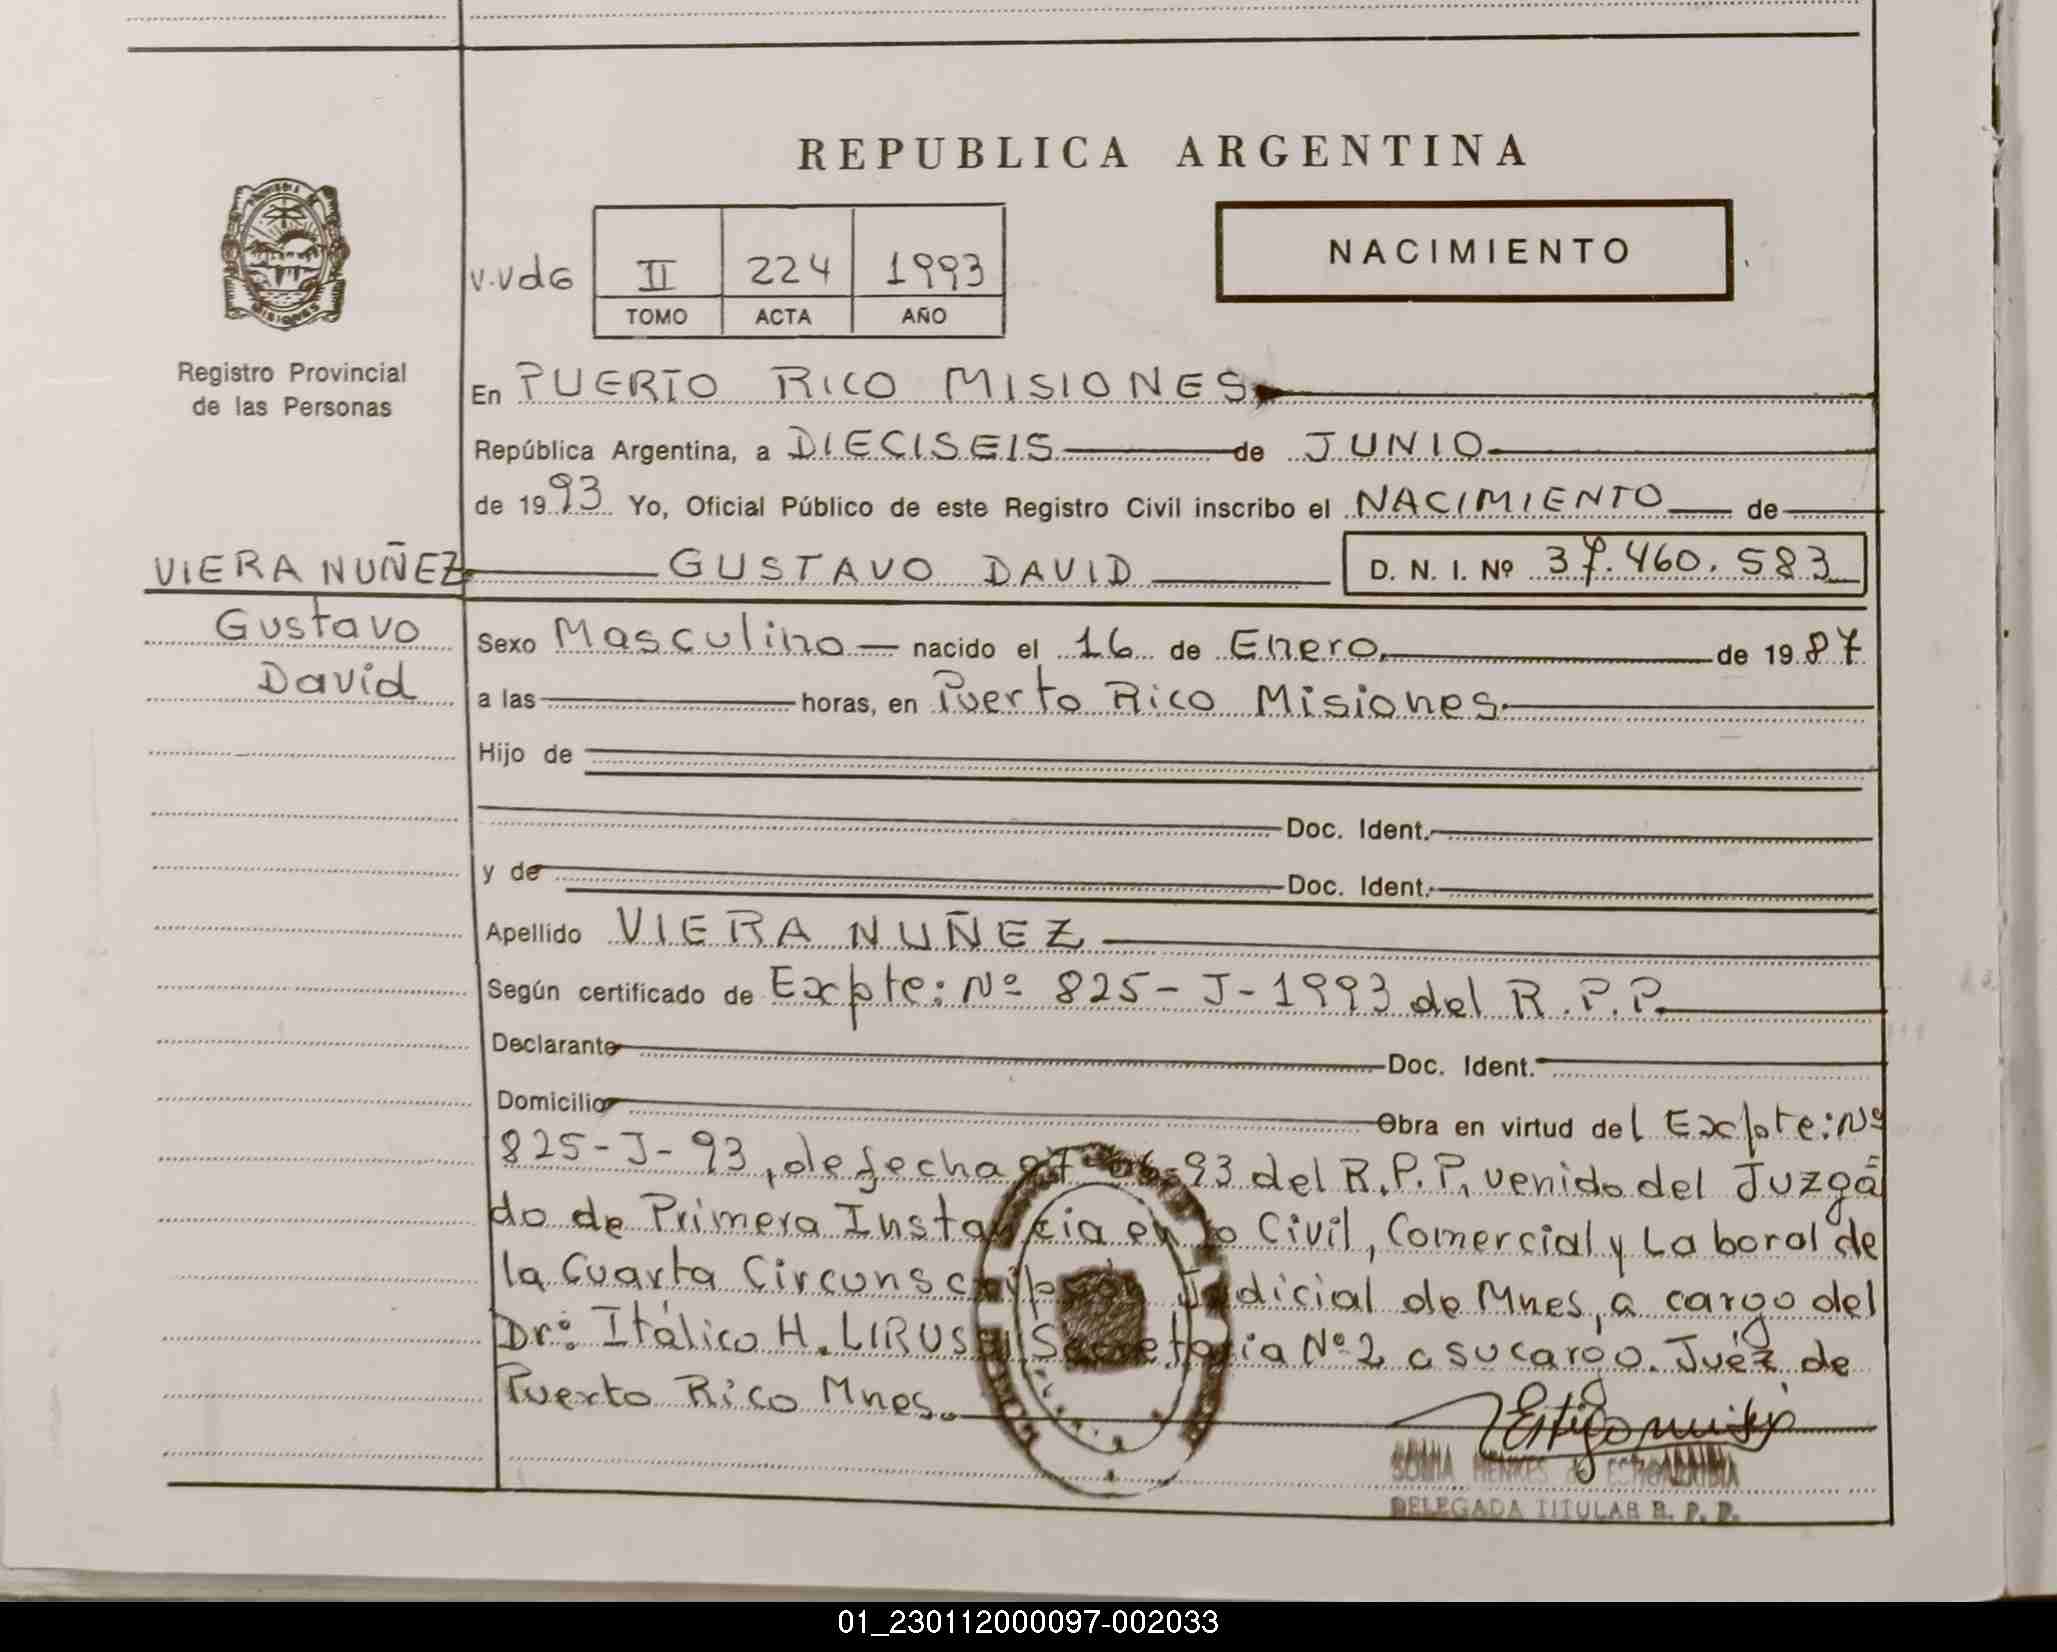 REPUBLICA ARGENTINA
NACIMIENTO
V.VdG II 224 1993
TOMO ACTA AÑO
Registro Provincial
de las Personas
En PUERTO RICO MISIONES
República Argentina, a DIECISEIS de JUNIO
de 1993 Yo, Oficial Público de este Registro Civil inscribo el NACIMIENTO de
VIERA NUÑEZ GUSTAVO DAVID D. N. I. Nº 37.460.583
Gustavo
David
Sexo Masculino nacido el 16 de Enero de 1987
a las horas, en Puerto Rico Misiones
Hijo de
Doc. Ident.
y de Doc. Ident.
Apellido VIERA NUÑEZ
Según certificado de Expte: Nº 825-J-1993 del R.P.P.
Declarante Doc. Ident.
Domicilio Obra en virtud del Expte: Nº
825-J-93, de fecha 07-06-93 del R.P.P. venido del Juzga
do de Primera Instancia en lo Civil, Comercial y Laboral de
la Cuarta Circunscripción Judicial de Mnes, a cargo del
Dr: Itálico H. LIRUSSI Secretaria Nº 2 a su cargo. Juéz de
Puerto Rico Mnes.
DELEGADA TITULAR R. P. P.
01_230112000097-002033